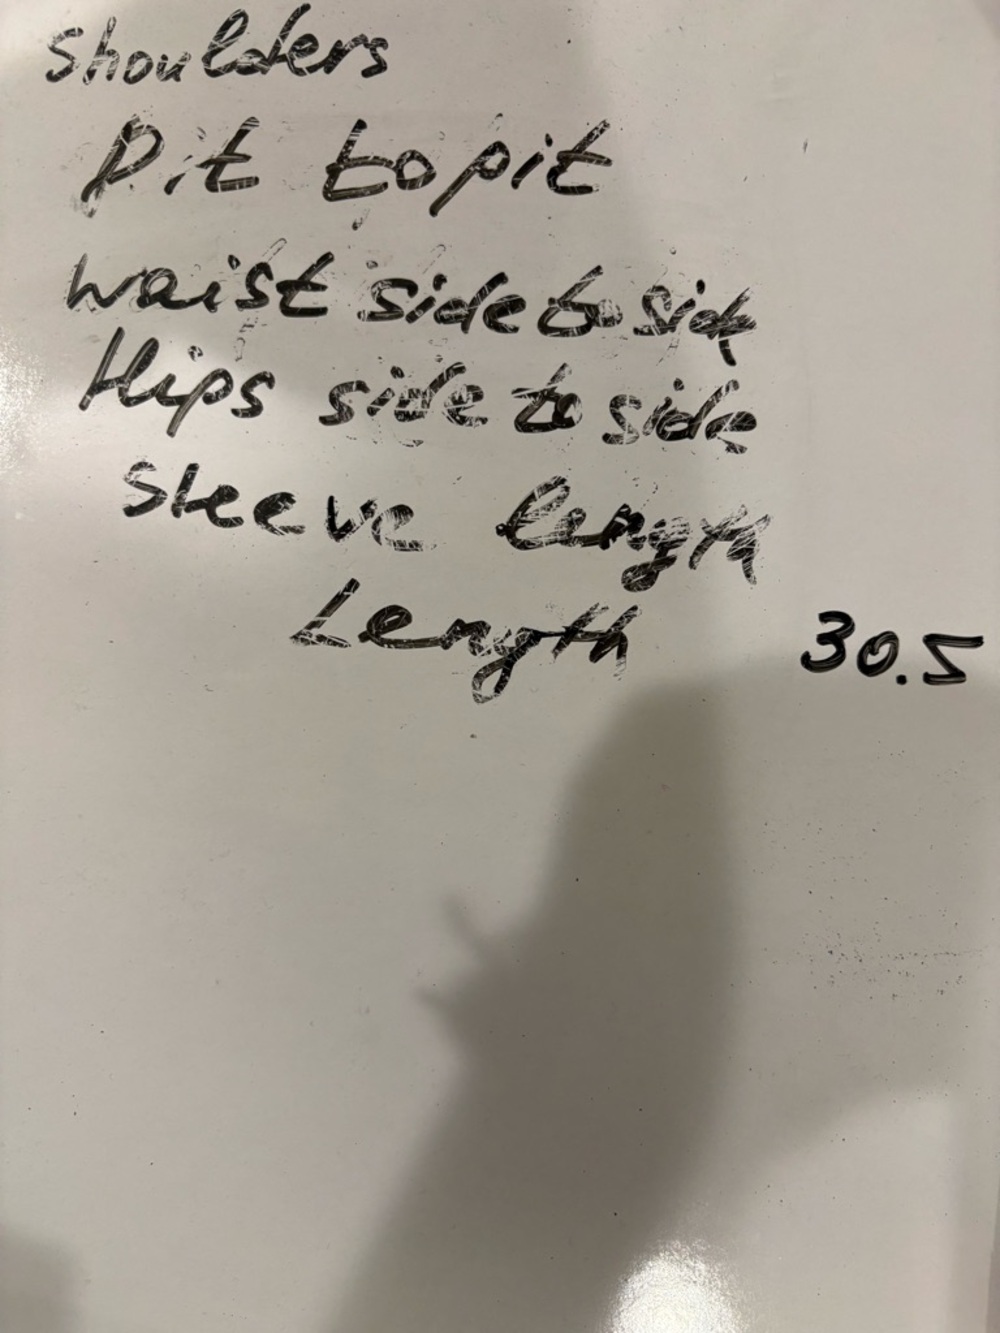 Shoulders
Pit to pit
waist side to side
Hips side to side
Sleeve length
Length 30.5